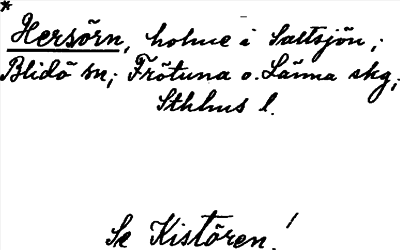 * Hersörn, holme i Saltsjön;
Blidö sn; Frötuna o. Länna skg;
Sthlms l.
Se Kistören!